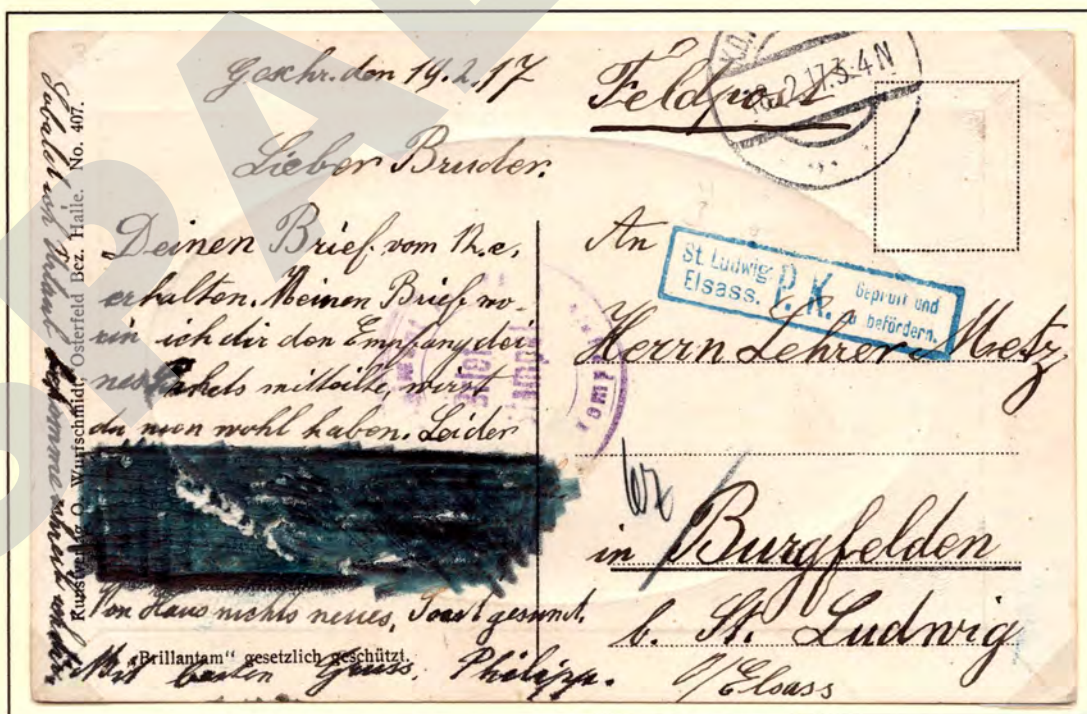 Geschr. den 19.2.17
Lieber Bruder.
Deinen Brief vom 12. c.
erhalten. Meinen Brief wo-
rin ich dir den Empfang dei-
nes Pakets mitteilte, wirst
du nun wohl haben. Leider
Von Haus nichts neues, Sonst gesund.
Mit besten Gruss. Philipp.
Sobald ich Urlaub bekomme
Kunstverlag O. Wurfschmidt, Osterfeld Bez. Halle. No. 407.
„Brillantam" gesetzlich geschützt.
Feldpost
2.17.3-4N
An
St. Ludwig
Elsass.
P. K.
Geprüft und
zu befördern.
Herrn Lehrer Metz
in Burgfelden
b. St. Ludwig
i/Elsass